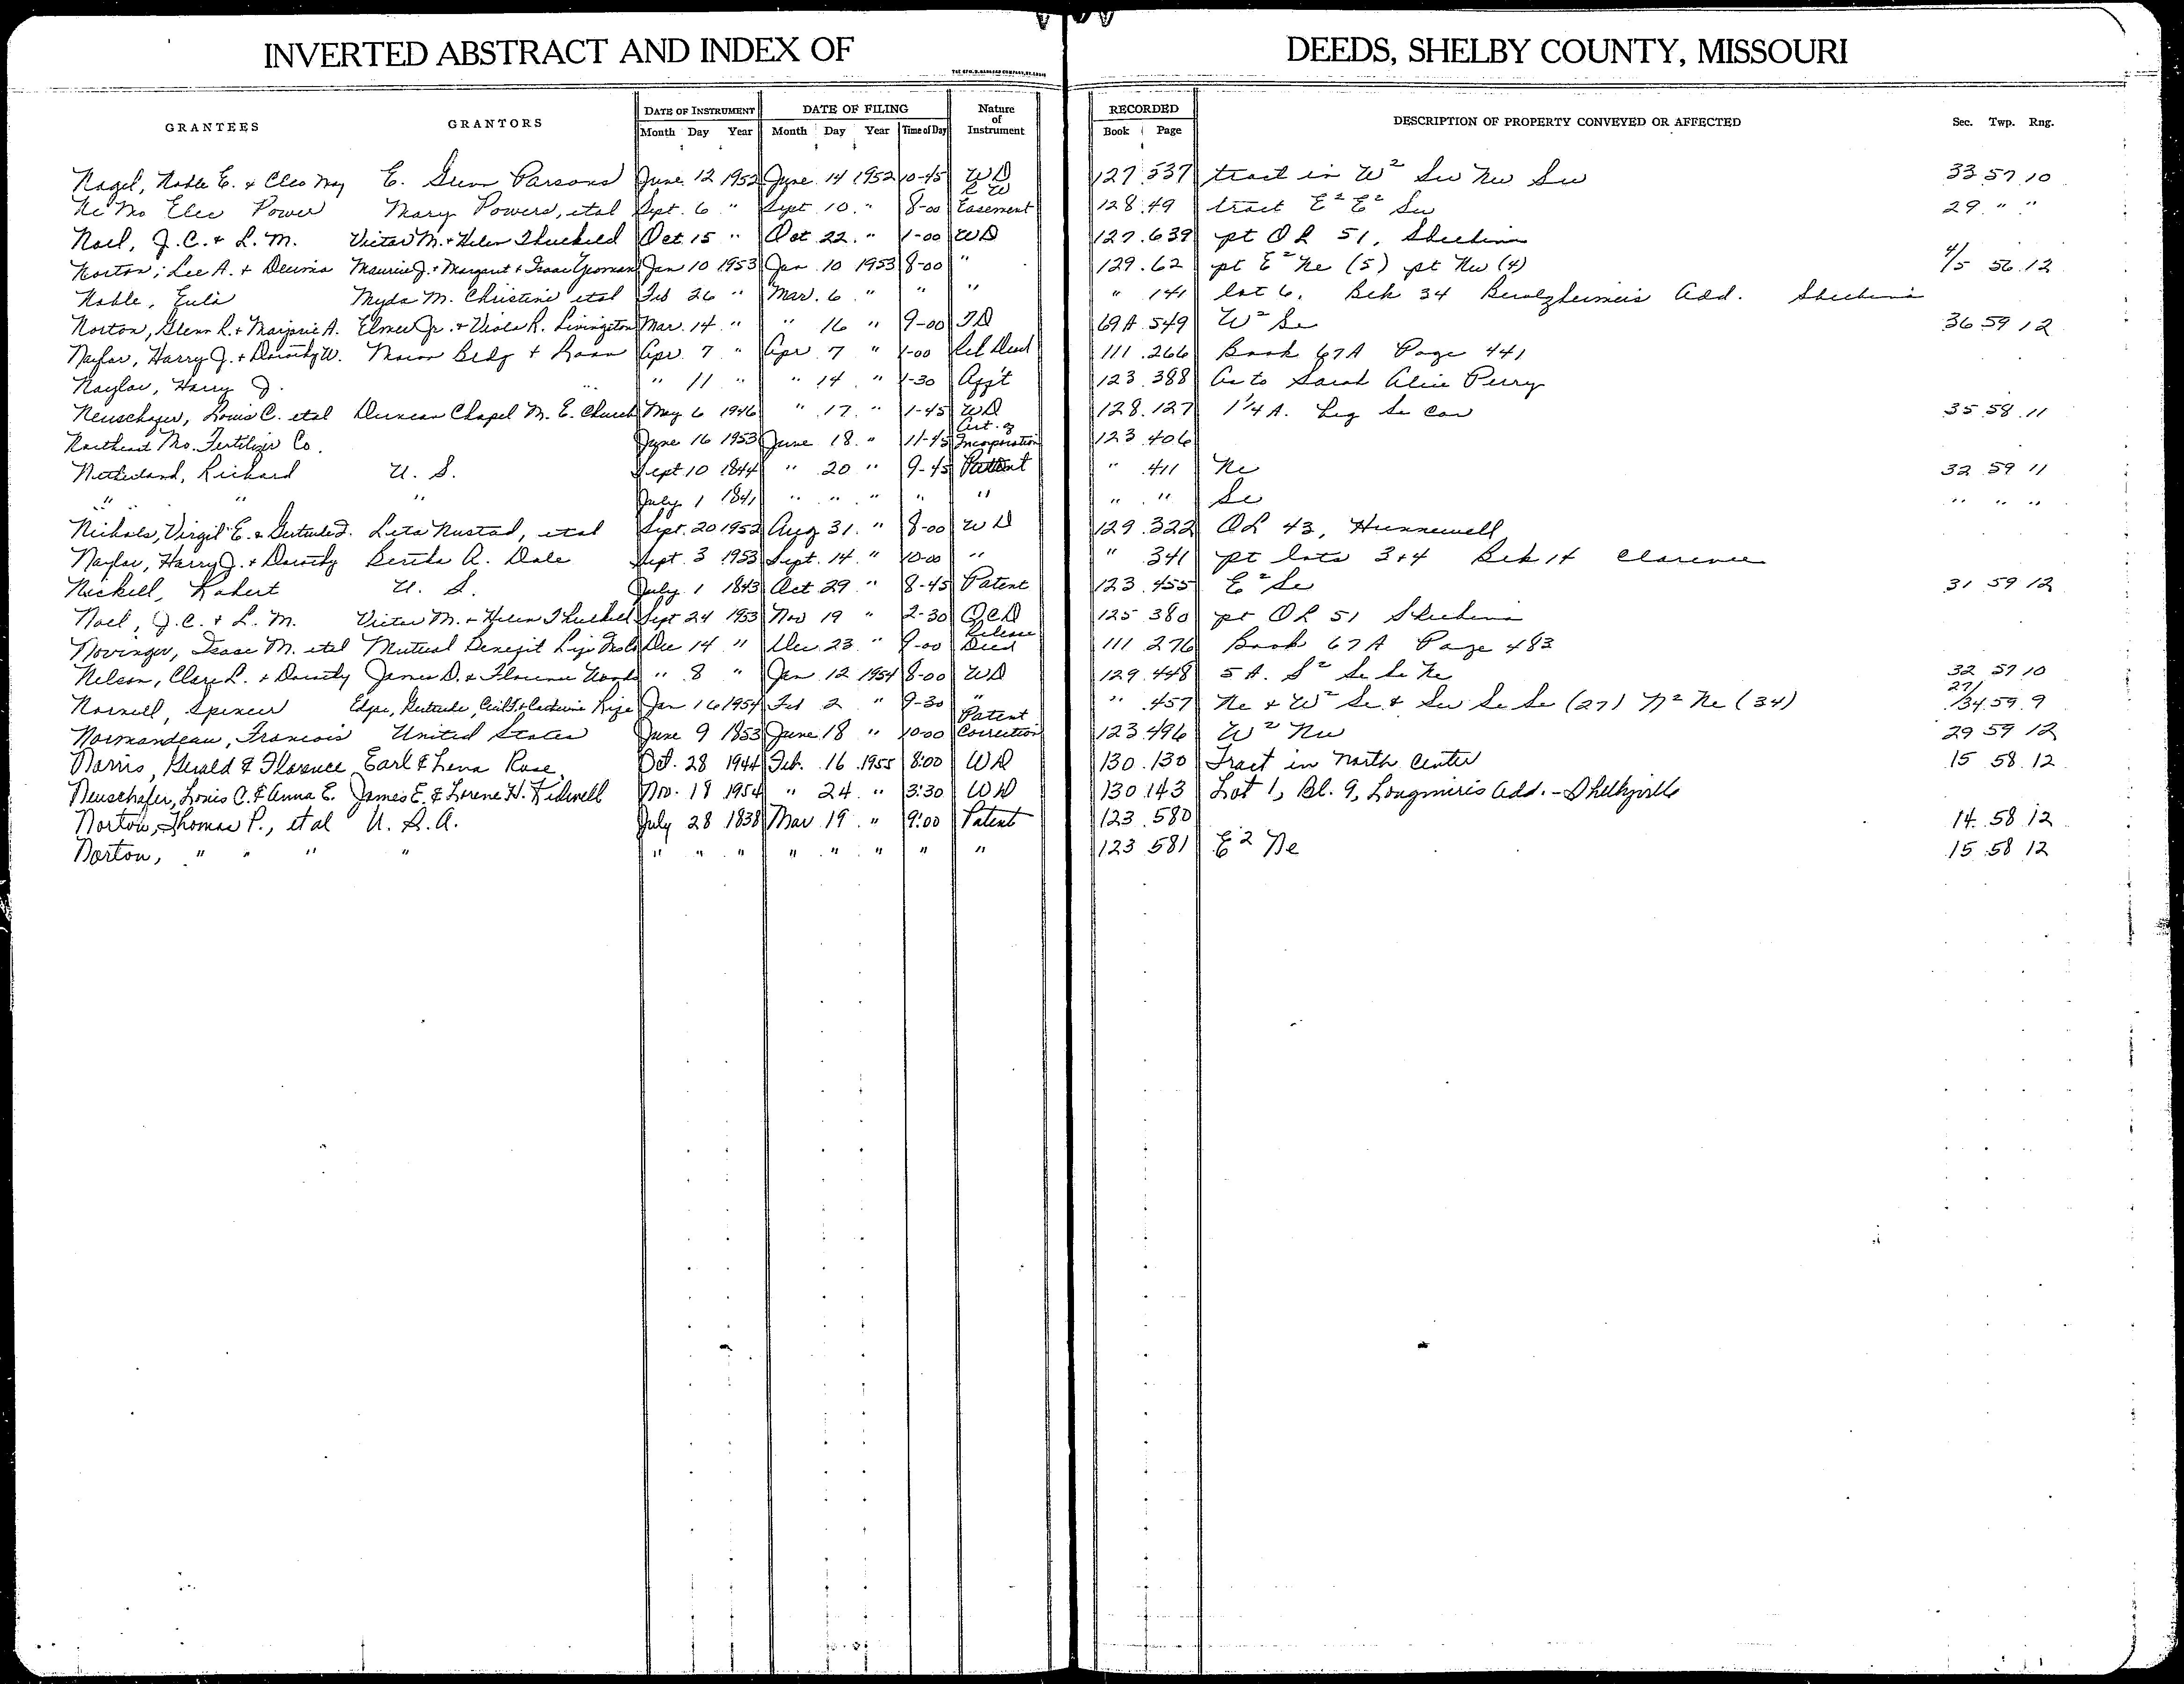 INVERTED ABSTRACT AND INDEX OF DEEDS, SHELBY COUNTY, MISSOURI
GRANTEES GRANTORS DATE OF INSTRUMENT DATE OF FILING Nature of Instrument RECORDED DESCRIPTION OF PROPERTY CONVEYED OR AFFECTED Sec. Twp. Rng.
Month Day Year Month Day Year Time of Day Book Page
Nagel, Noble E. & Cleo May E. Glenn Parsons June 12 1952 June 14 1952 10-45 WD 127 537 tract in W² Sw Nw Sw 33 57 10
Ne Mo Elec Power Mary Powers, etal Sept. 6 " Sept 10 " 8-00 R W Easement 128 49 tract E² E² Sw 29 " "
Noel, J.C. & L.M. Victor M. & Helen Thuehold Oct 15 " Oct 22 " 1-00 WD 127 639 pt OL 51, Shelbina
Norton, Lee A. & Decima Maurice J. & Margaret & Isaac Yeoman Jan 10 1953 Jan 10 1953 8-00 " 129 62 pt E² Ne (5) pt Nw (4) 4/5 56 12
Noble, Eula Myda M. Christine etal Feb 26 " Mar. 6 " " " " 141 lot 6, Blk 34 Benolzheimer's Add. Shelbina
Norton, Glenn R. & Marjorie A. Elmer Jr. & Viola R. Livingston Mar. 14 " " 16 " 9-00 TD 69A 549 W² Se 36 59 12
Naylor, Harry J. & Dorothy W. Macon Bldg & Loan Apr. 7 " Apr 7 " 1-00 Rel Deed 111 266 Book 67A Page 441
Naylor, Harry J. " 11 " " 14 " 1-30 App't 123 388 As to Sarah Alice Perry
Neuschafer, Louis C. etal Duncan Chapel M. E. Church May 6 1946 " 17 " 1-45 WD 128 127 1¼ A. beg Se cor 35 58 11
Northeast Mo. Fertilizer Co. June 16 1953 June 18 " 11-45 Art. of Incorporation 123 406
Netherland, Richard U. S. Sept 10 1844 " 20 " 9-45 Patent " 411 Ne 32 59 11
" " " July 1 1841 " " " " " " " Se " " "
Nichols, Virgil E. & Gertrude D. Leta Nustad, etal Sept. 20 1952 Aug 31 " 8-00 WD 129 322 OL 43, Hunnewell
Naylor, Harry J. & Dorothy Bertha A. Dale Sept. 3 1953 Sept. 14 " 10-00 " " 341 pt lots 3+4 Blk 14 Clarence
Nickell, Robert U. S. July 1 1843 Oct 29 " 8-45 Patent 123 455 E² Se 31 59 12
Noel, J.C. & L. M. Victor M. & Helen Thuehold Sept 24 1953 Nov 19 " 2-30 QCD 125 380 pt OL 51 Shelbina
Novinger, Isaac M. etal Mutual Benefit Life Ins Co Dec 14 " Dec 23 " 9-00 Release Deed 111 276 Book 67A Page 483
Nelson, Clare L. & Dorothy James D. & Florence Woods " 8 " Jan 12 1954 8-00 WD 129 448 5 A. S² Se Se Ne 32 57 10
Norvell, Spencer Edgar, Gertrude, Cecil & Catherine Rige Jan 16 1954 Feb 2 " 9-30 " " 457 Ne & W² Se & Sw Se Se (27) N² Ne (34) 27/34 59 9
Normandeau, Francois United States June 9 1853 June 18 " 10-00 Patent Correction 123 496 W² Nw 29 59 12
Norris, Gerald & Florence Earl & Lena Rose Oct. 28 1944 Feb. 16 1955 8:00 WD 130 130 Tract in North Center 15 58 12
Neuschafer, Louis C. & Anna E. James E. & Lorene H. Kidwell Nov. 18 1954 " 24 " 3:30 WD 130 143 Lot 1, Bl. 9, Longmires Add. - Shelbyville
Norton, Thomas P., et al U. S. A. July 28 1838 Mar 19 " 9:00 Patent 123 580 14 58 12
Norton, " " " " " " " " " " " " 123 581 E² Ne 15 58 12